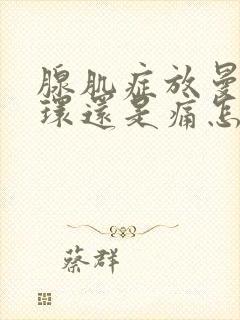 腺肌症放曼
環還是痛怎
蔡群